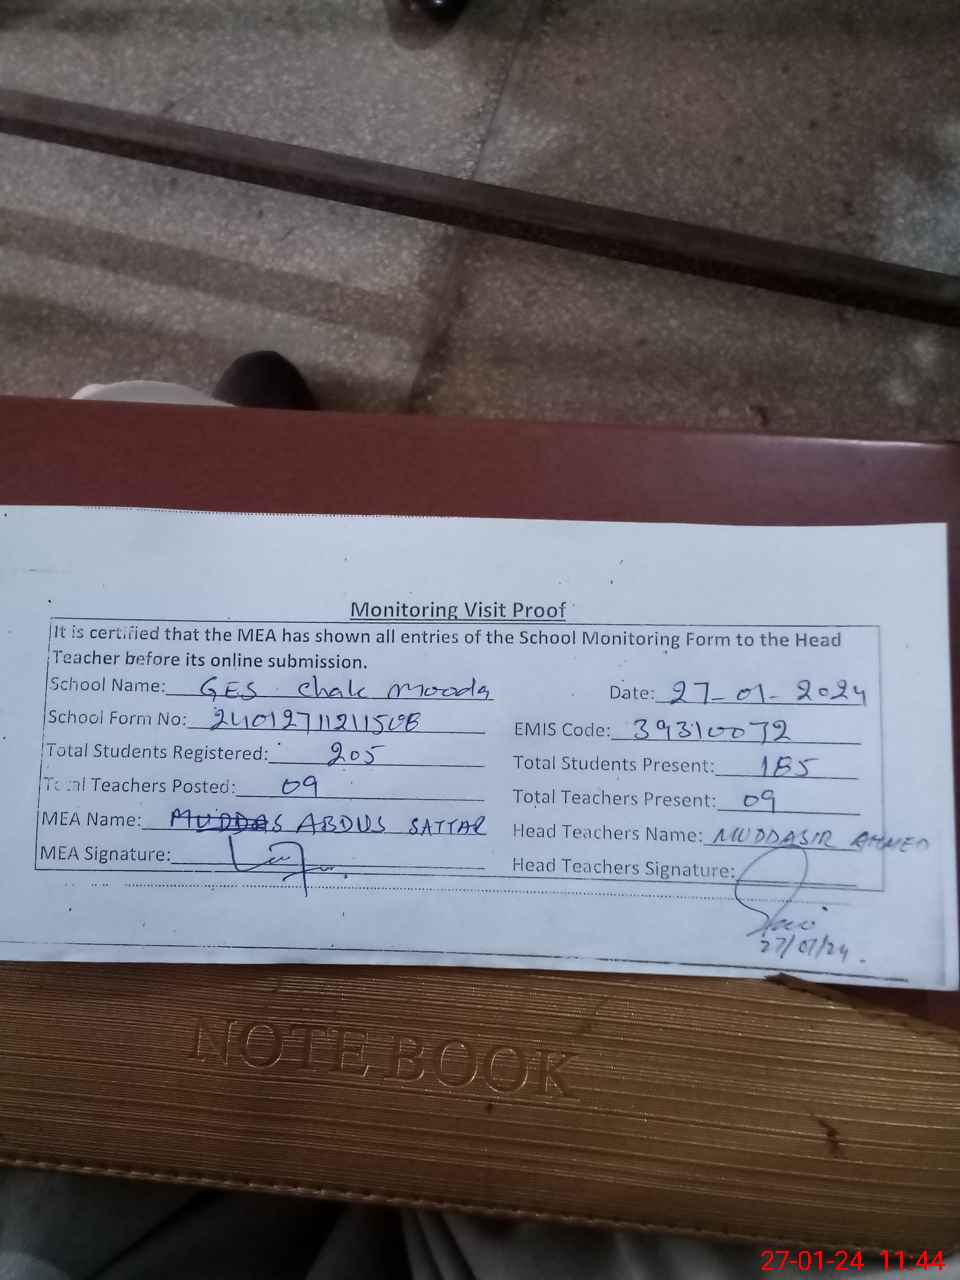 Monitoring Visit Proof
It is certified that the MEA has shown all entries of the School Monitoring Form to the Head
Teacher before its online submission.
School Name: GES Chak Mooda Date: 27-01-2024
School Form No: 24012711211508 EMIS Code: 39310072
Total Students Registered: 205 Total Students Present: 185
Total Teachers Posted: 09 Total Teachers Present: 09
MEA Name: ABDUS SATTAR Head Teachers Name: MUDDASIR AHMED
MEA Signature: Head Teachers Signature:
27/01/24.
NOTE BOOK
27-01-24 11:44